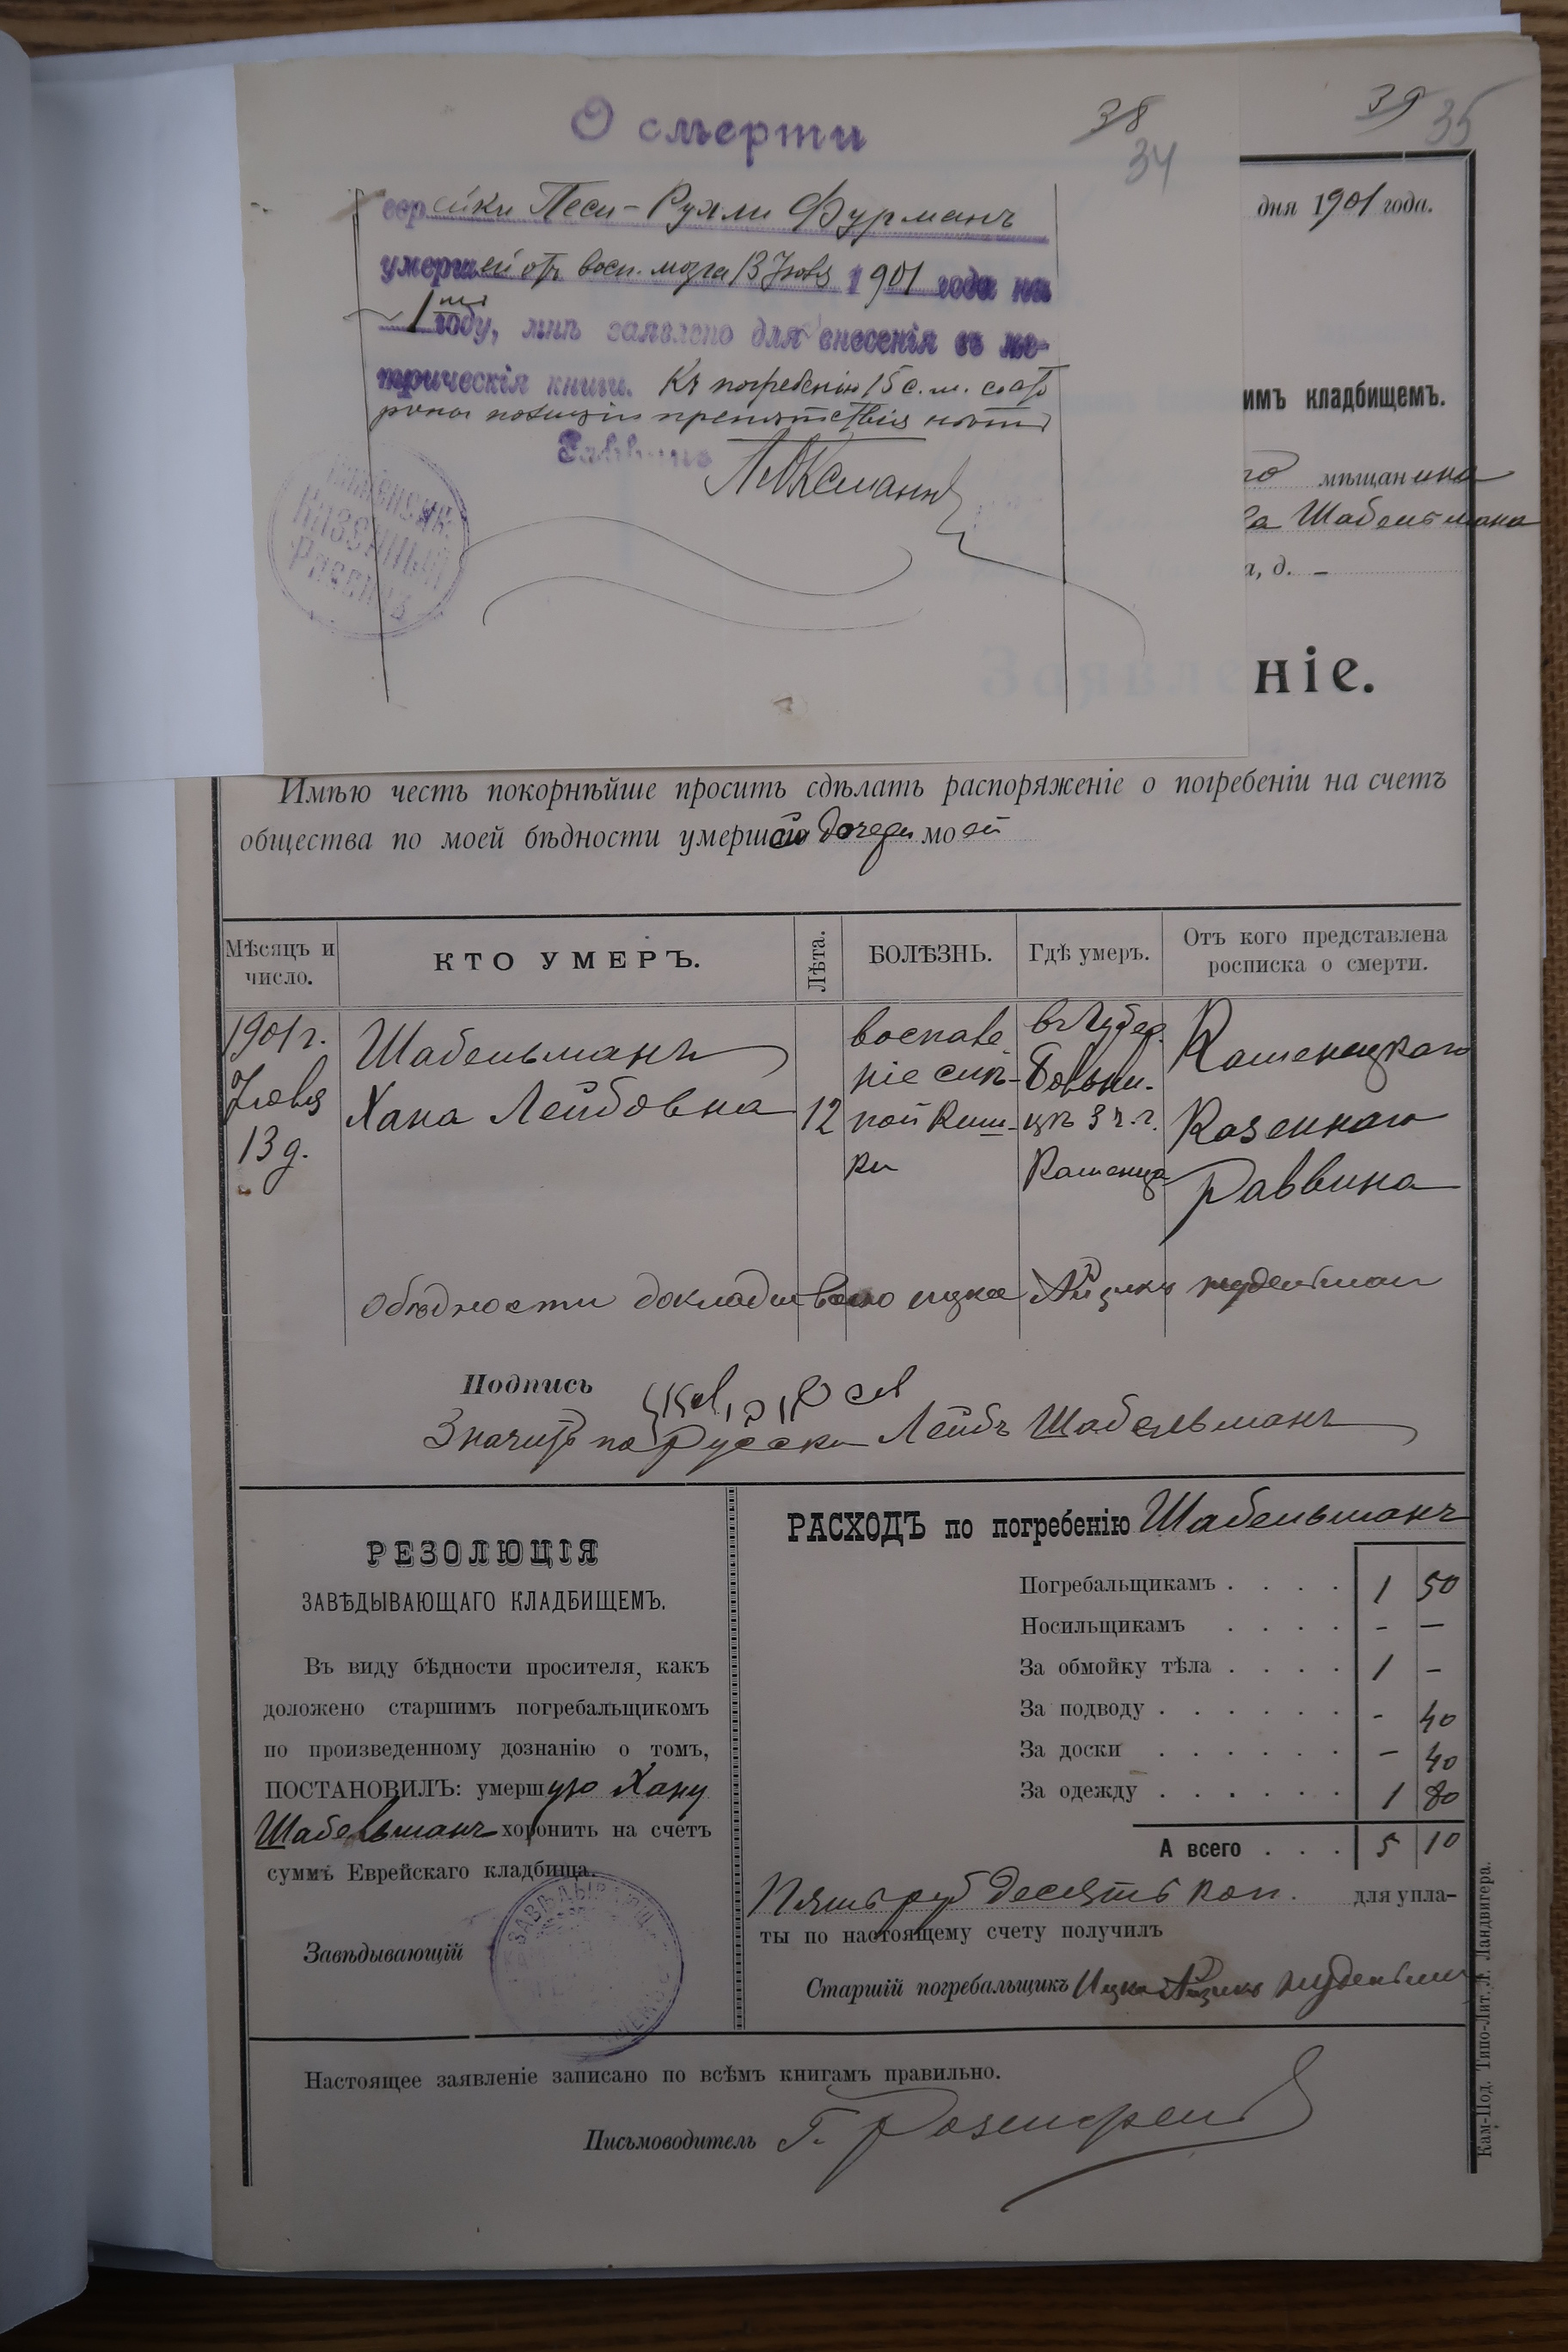 О смерти
38
34
39 35
еврейки Песи-Рухли Фурманъ
умершей отъ восп. мозга 13 Іюня 1901 года на
1мъ году, мнѣ заявлено для внесенія въ ме-
трическія книги. Къ погребенію 15 с.м. со сто
роны полиціи препятствія нѣтъ
Раввинъ
КАЗЕННЫЙ
Раввинъ
дня 1901 года.
имъ кладбищемъ.
го мѣщанина
ба Шабельмана
а, д. –
ніе.
Имѣю честь покорнѣйше просить сдѣлать распоряженіе о погребеніи на счетъ
общества по моей бѣдности умершей дочери моей
Мѣсяцъ и число.
КТО УМЕРЪ.
Лѣта.
БОЛѢЗНЬ.
Гдѣ умеръ.
Отъ кого представлена росписка о смерти.
1901 г. Шабельманъ воспале въ Губер. Каменецкаго
Іюня Хана Лейбовна 12 ніе слѣ- больни- Казеннаго
13 д. пой киш- цѣ г. Раввина
ки Каменца
О бѣдности докладывалъ Ицко Айзикъ
Подпись
Значитъ по Русски Лейбъ Шабельманъ
РЕЗОЛЮЦІЯ
ЗАВѢДЫВАЮЩАГО КЛАДБИЩЕМЪ.
Въ виду бѣдности просителя, какъ
доложено старшимъ погребальщикомъ
по произведенному дознанію о томъ,
ПОСТАНОВИЛЪ: умершую Хану
Шабельманъ хоронить на счетъ
суммъ Еврейскаго кладбища.
Завѣдывающій
РАСХОДЪ по погребенію Шабельманъ
Погребальщикамъ . . . . 1 50
Носильщикамъ . . . . - —
За обмойку тѣла . . . . 1 -
За подводу . . . . . . - 40
За доски . . . . . . - 40
За одежду . . . . . . 1 80
А всего . . . 5 10
Пять руб десять коп. для упла-
ты по настоящему счету получилъ
Старшій погребальщикъ Ицко Айзикъ
Настоящее заявленіе записано по всѣмъ книгамъ правильно.
Письмоводитель Г.
Кам-Под. Типо-Лит. Л. Ландвигера.